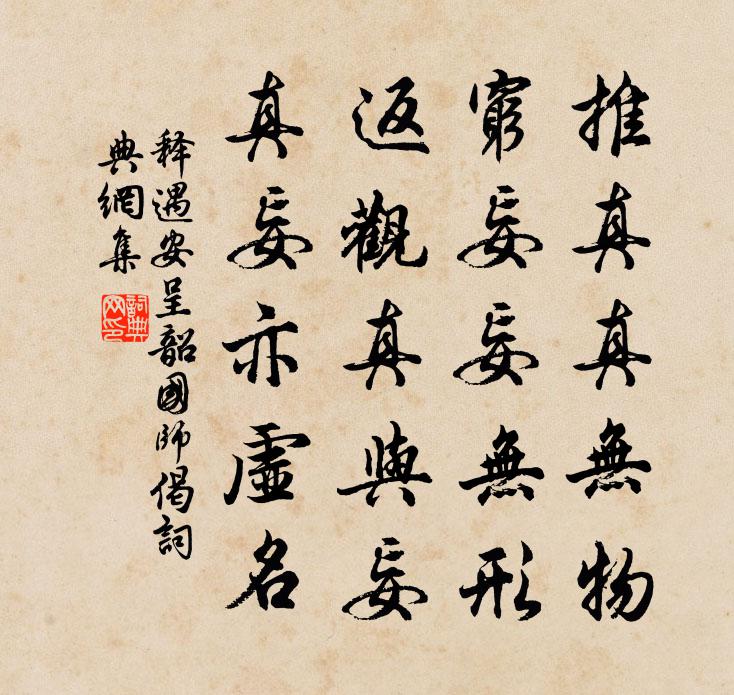 推真真無物
窮妄妄無形
返觀真與妄
真妄亦虛名
释遇安呈韶國師偈詞
典網集
詞典網印